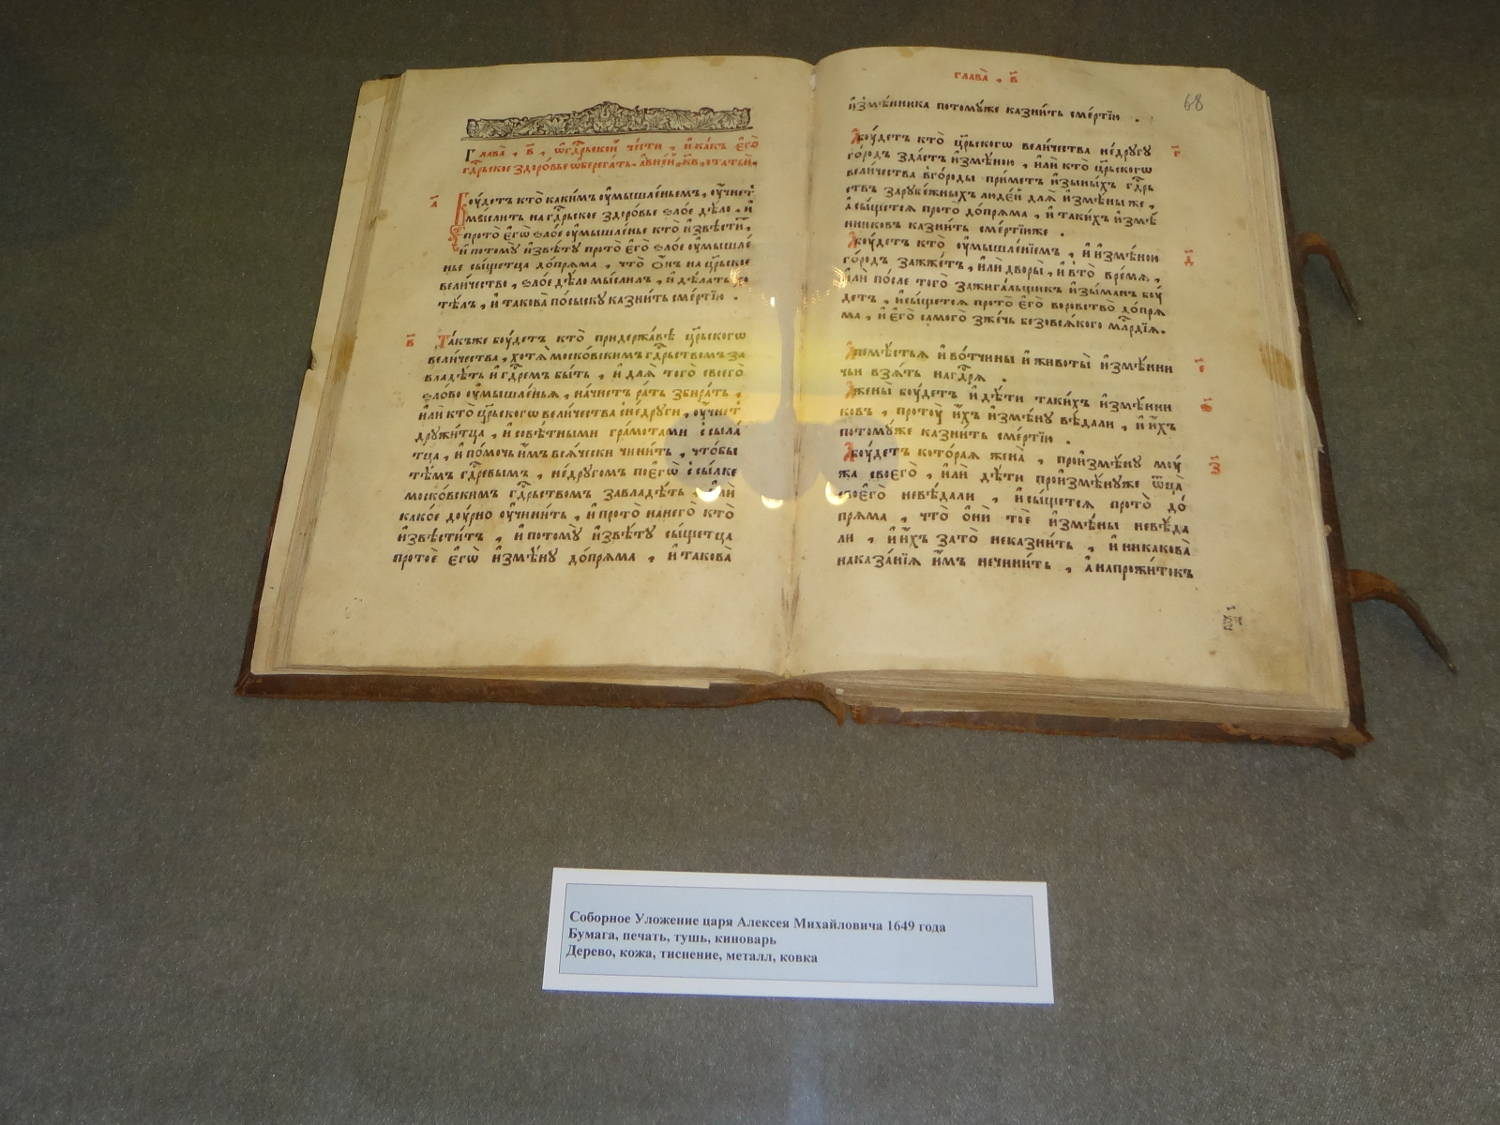 Глава̀ , в҃ , ѡ гдⷭ҇рьской че́сти , и҆ ка́къ є҆гѡ̀
гдⷭ҇рьское здоро́вье ѡ҆берега́ть . а҆ в не́й , к҃в , статьѝ .
а҃
Бꙋ́детъ кто̀ каки́мъ ᲂу҆мышле́ньемъ , ᲂу҆чнетъ
мы́слить на гдⷭ҇рьское здоро́вье ѕло́е дѣ́ло , и҆
про то̀ є҆гѡ̀ ѕло́е ᲂу҆мышле́нье кто̀ и҆звѣсти́тъ ,
и҆ по томꙋ̀ и҆звѣ́тꙋ про то̀ є҆го̀ ѕло́е ᲂу҆мышле́
нье сы́щетца до́пряма , что̀ ѻ҆́нъ на црⷭ҇кое
вели́чество , ѕло́е дѣ́ло мы́слилъ , и҆ дѣ́лать хо
тѣ́лъ , и҆ такова̀ по сы́скꙋ казни́ть сме́ртїю .
в҃
Та́къже бꙋ́детъ кто̀ при держа́вѣ црⷭ҇кого
вели́чества , хотѧ̀ моско́вскимъ гдⷭ҇рьствомъ за
владѣ́ть и҆ гдⷭ҇ремъ бы́ть , и҆ для того̀ своего̀
ѕло́во ᲂу҆мышле́нья , на́чнетъ ра́ть збира́ть ,
и҆лѝ кто̀ црⷭ҇кого вели́чества с не́дрꙋги , ᲂу҆чнетъ
дрꙋжи́тца , и҆ совѣ́тными гра́мотами ссыла́
тца , и҆ по́мочь и҆̀мъ всячески чини́ть , что́бы
тѣ́мъ гдⷭ҇ревымъ , не́дрꙋгомъ по є҆гѡ̀ ссы́лке
моско́вскимъ гдⷭ҇рьствомъ завладѣ́ть , и҆лѝ
како́е дꙋ́рно ᲂу҆чини́ть , и҆ про то̀ на него̀ кто̀
и҆звѣсти́тъ , и҆ по томꙋ̀ и҆звѣ́тꙋ сы́щетца
про то́е є҆гѡ̀ и҆змѣ́нꙋ до́пряма , и҆ такова̀
глава̀ , в҃
68
и҆змѣ́нника по томꙋ́же казни́ть сме́ртїю .
г҃
А҆ бꙋ́детъ кто̀ црⷭ҇кого вели́чества не́дрꙋгꙋ
го́родъ зда́стъ и҆змѣ́ною , и҆лѝ кто̀ црⷭ҇кого
вели́чества в го́роды при́метъ и҆зъ и҆ны́хъ гдⷭ҇рь
ствъ зарꙋбе́жныхъ люде́й для и҆змѣ́ны же ,
а҆ сы́щется про то̀ до́пряма , и҆ таки́хъ и҆змѣ́
нниковъ казни́ть сме́ртїю же .
д҃
А҆ бꙋ́детъ кто̀ ᲂу҆мышле́нїемъ , и҆ и҆змѣ́ною
го́родъ зажже́тъ , и҆лѝ дворы̀ , и҆ в то̀ вре́мя ,
и҆лѝ по́сле того̀ зажига́льщикъ и҆зы́манъ бꙋ́
детъ , и҆ сы́щется про то̀ є҆го̀ воровство̀ до́пря
ма , и҆ є҆го̀ самого̀ зже́чь безо вся́кого мⷭ҇рдїя .
є҃
А҆ помѣ́стья и҆ во́тчины и҆ животы̀ и҆змѣ́нни
чьи взя́ть на гдⷭ҇ря .
ѕ҃
А҆ жены̀ бꙋ́детъ и҆ дѣ́ти таки́хъ и҆змѣ́нни
ковъ , про тꙋ̀ и҆́хъ и҆змѣ́нꙋ вѣ́дали , и҆ и҆́хъ
по томꙋ́же казни́ть сме́ртїю .
з҃
А҆ бꙋ́детъ кото́рая жена̀ , про и҆змѣ́нꙋ мꙋ́
жа своего̀ , и҆лѝ дѣ́ти про и҆змѣ́нꙋже ѻ҆тца̀
своего̀ не вѣ́дали , и҆ сы́щется про то̀ до́
пряма , что̀ ѻ҆нѝ то́е и҆змѣ́ны не вѣ́да
ли , и҆ и҆́хъ за то̀ не казни́ть , и҆ никакова̀
наказа́нїя и҆̀мъ не чини́ть , а҆ на прожи́токъ
Соборное Уложение царя Алексея Михайловича 1649 года
Бумага, печать, тушь, киноварь
Дерево, кожа, тиснение, металл, ковка